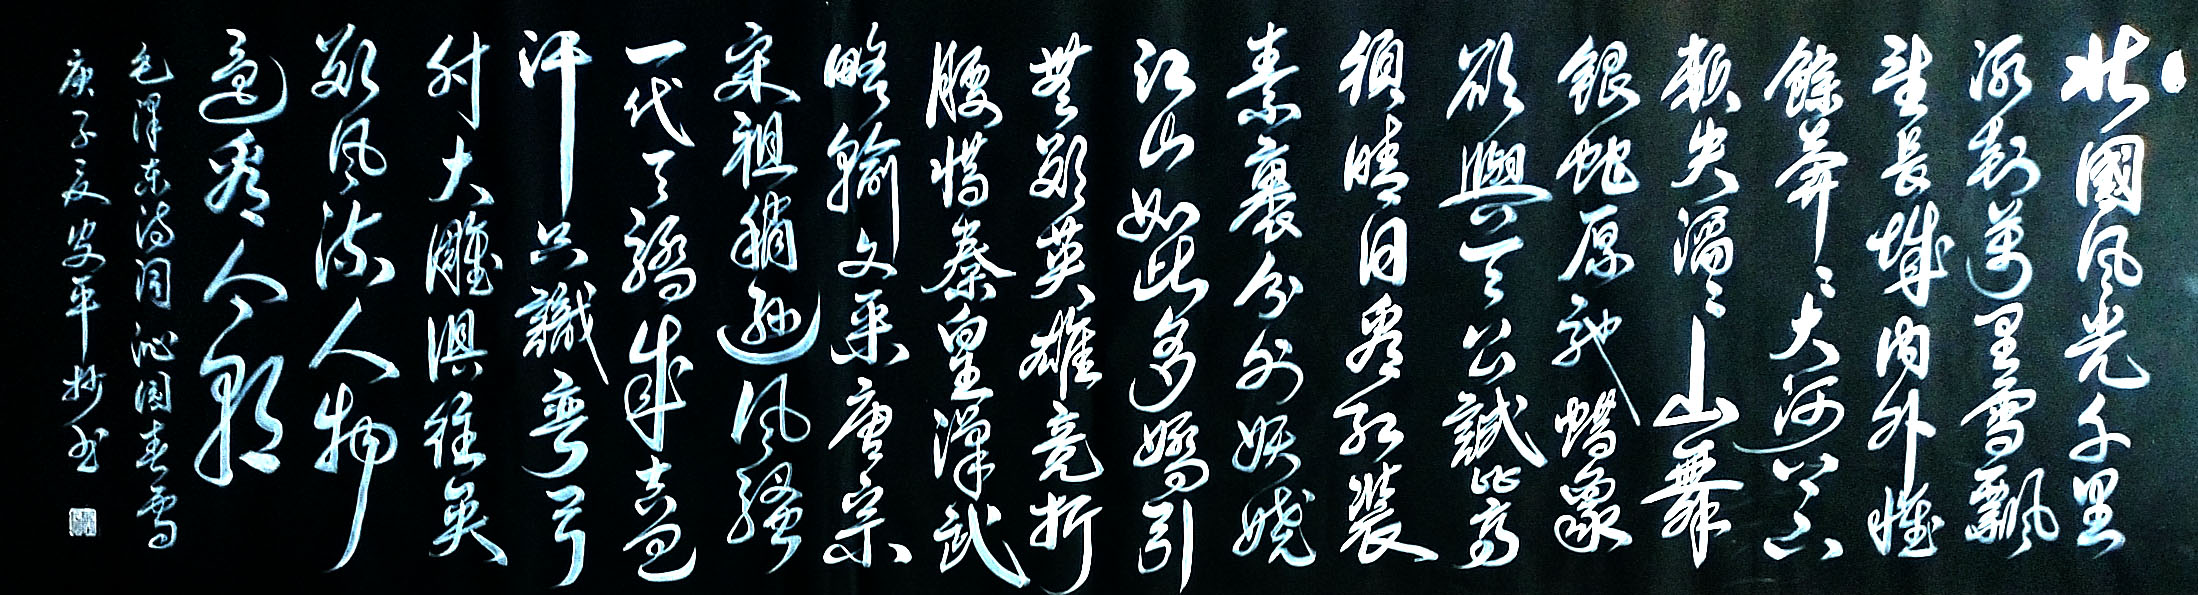 北國風光千里
冰封萬里雪飄
望長城內外惟
餘莽〻大河上下
頓失滔〻山舞
銀蛇原馳蠟象
欲與天公試比高
須晴日看紅裝
素裹分外妖嬈
江山如此多嬌引
無數英雄竞折
腰惜秦皇漢武
略輸文采唐宗
宋祖稍遜風騷
一代天驕成吉思
汗只識彎弓
射大雕俱往矣
數風流人物
還看今朝
毛澤東詩詞沁園春雪
庚子夏安平抄书